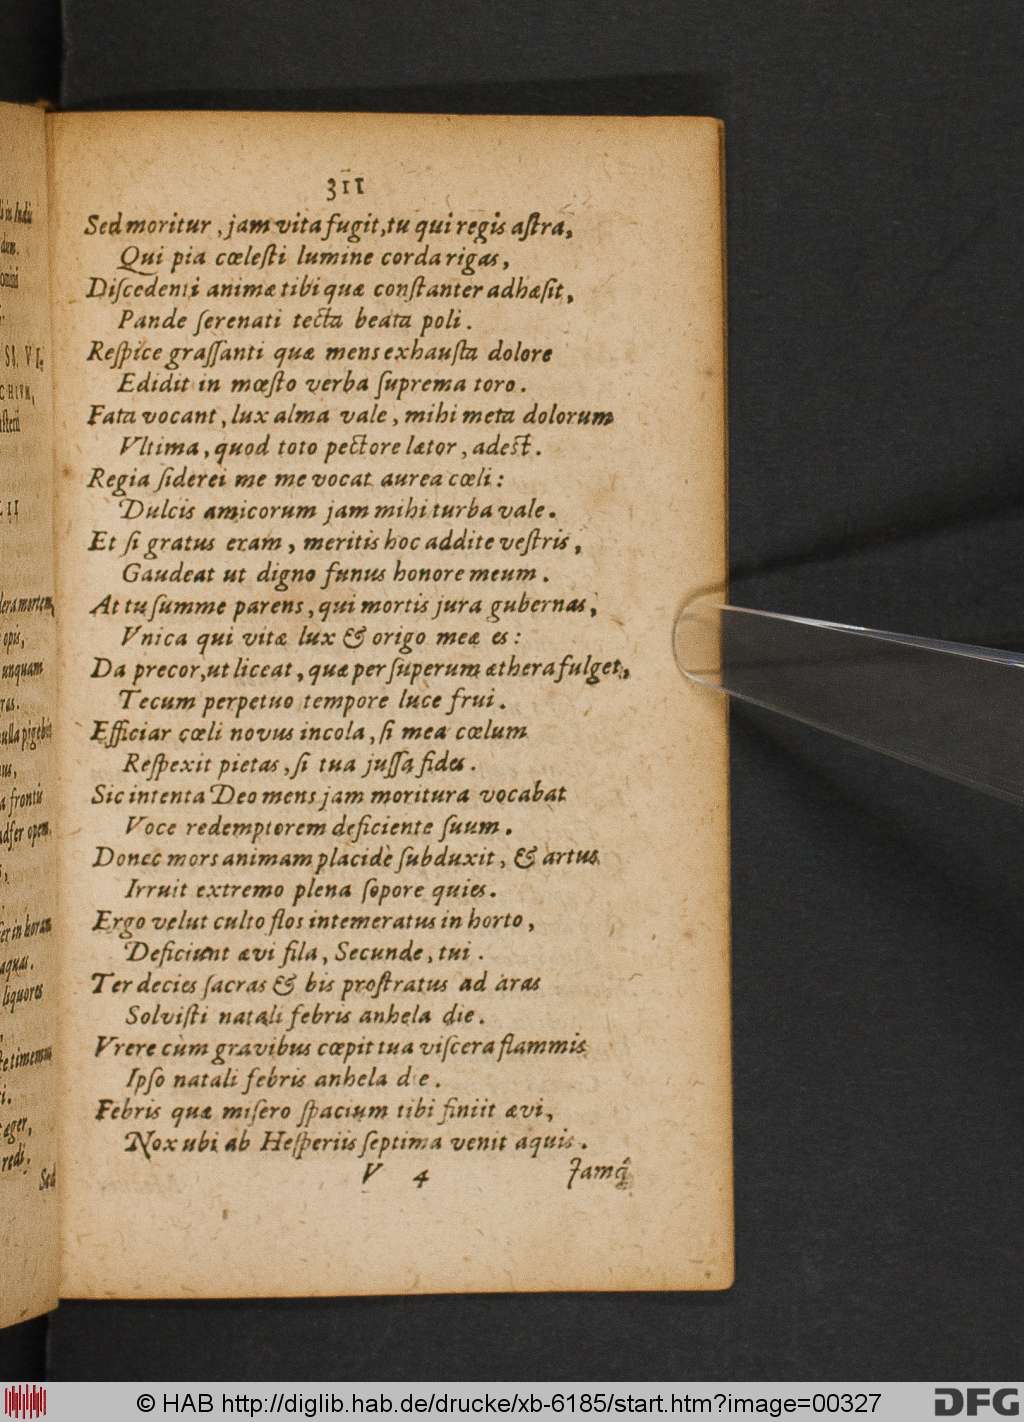 311
Sed moritur, jam vita fugit, tu qui regis aſtra,
Qui pia cœleſti lumine corda rigas,
Diſcedenti animæ tibi quæ conſtanter adhæſit,
Pande ſerenati tecta beata poli.
Reſpice graſſanti quæ mens exhauſta dolore
Edidit in mœſto verba ſuprema toro.
Fata vocant, lux alma vale, mihi meta dolorum
Vltima, quod toto pectore lætor, adeſt.
Regia ſiderei me me vocat aurea cœli:
Dulcis amicorum jam mihi turba vale.
Et ſi gratus eram, meritis hoc addite veſtris,
Gaudeat ut digno funus honore meum.
At tu ſumme parens, qui mortis jura gubernas,
Vnica qui vitæ lux & origo meæ es:
Da precor, ut liceat, quæ per ſuperum æthera fulget,
Tecum perpetuo tempore luce frui.
Efficiar cœli novus incola, ſi mea cœlum
Reſpexit pietas, ſi tua juſſa fides.
Sic intenta Deo mens jam moritura vocabat
Voce redemptorem deficiente ſuum.
Donec mors animam placidè ſubduxit, & artus
Irruit extremo plena ſopore quies.
Ergo velut culto flos intemeratus in horto,
Deficiunt ævi fila, Secunde, tui.
Ter decies ſacras & bis proſtratus ad aras
Solviſti natali febris anhela die.
Vrere cùm gravibus cœpit tua viſcera flammis
Ipſo natali febris anhela die.
Febris quæ miſero ſpacium tibi finiit ævi,
Nox ubi ab Heſperiis ſeptima venit aquis.
V 4 Jamq́
© HAB http://diglib.hab.de/drucke/xb-6185/start.htm?image=00327
DFG